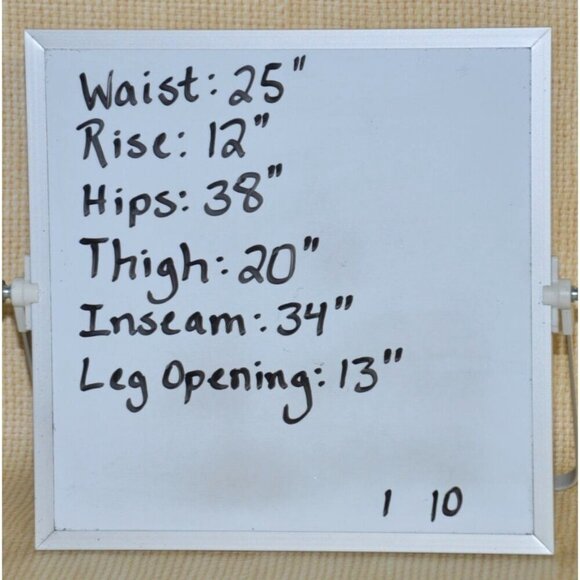 Waist: 25"
Rise: 12"
Hips: 38"
Thigh: 20"
Inseam: 34"
Leg Opening: 13"
1 10